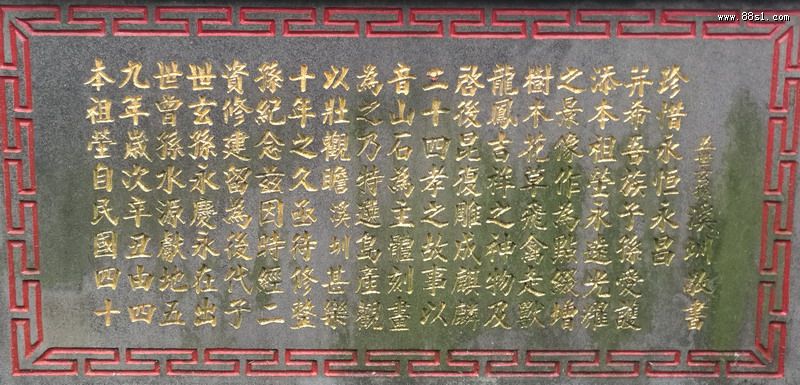 本祖塋自民國四十
九年歲次辛丑由四
世曾孫水源獻地五
世玄孫永慶永在出
資修建留為後代子
孫紀念茲因時經二
十年之久亟待修整
以壯觀瞻溪圳甚樂
為之乃特選島產觀
音山石為主體刻畫
二十四孝之故事以
啓後昆復雕成麒麟
龍鳳吉祥之神物及
樹木花草飛禽走獸
之景像作為點綴增
添本祖塋永遠光耀
并希吾族子孫愛護
珍惜永恒永昌
溪圳敬書
www.88s1.com